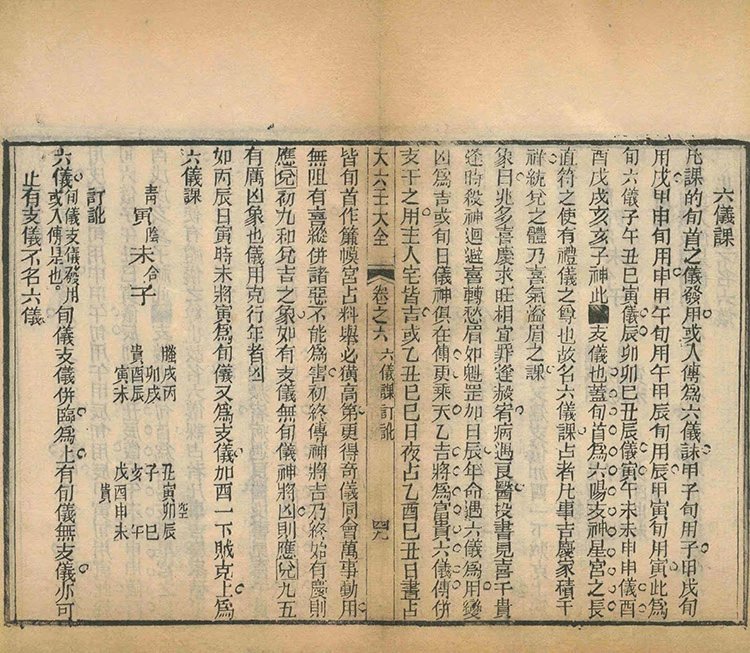 六儀課
凡課的旬首之儀發用或入傳爲六儀課甲子旬用子甲戌旬
用戌甲申旬用申甲午旬用午甲辰旬用辰甲寅旬用寅此爲
旬六儀子午丑巳寅儀辰卯卯巳丑辰儀寅午未未申申儀酉
酉戌戌亥亥子神此支儀也蓋旬首爲六陽支神星宮之長
直符之使有禮儀之尊也故名六儀課占者凡事吉慶家積千
祥統兌之體乃喜氣溢眉之課
象曰兆多喜慶求旺相宜罪逢赦宥病遇良醫投書見喜千貴
逢時殺神迴避喜轉愁眉如魁罡加日辰年命遇六儀爲用變
凶爲吉或旬日儀神俱在傳更乘天乙吉將爲富貴六儀傳併
支干之用主人宅皆吉或乙丑巳巳日夜占乙酉巳丑日晝占
大六壬大全 卷之六 六儀課 訂訛 四九
皆旬首作簾幙官占科舉必獲高第更得奇儀同會萬事動用
無阻有喜縱併諸惡不能爲害初終傳神將吉乃終始有慶則
應兌初九和兌吉之象如有支儀無旬儀神將凶則應兌九五
有厲凶象也儀用克行年者凶
如丙辰日寅時未將寅爲旬儀又爲支儀加酉一下賊克上爲
六儀課
青 陰 合
寅 未 子
螣戌丙 丑寅卯辰 空
卯戌 子 巳
貴酉辰 亥 午
寅酉 戌酉申未
貴
訂訛
六儀旬儀支儀發用或入傳是也旬儀支儀併臨爲上有旬儀無支儀亦可
止有支儀不名六儀